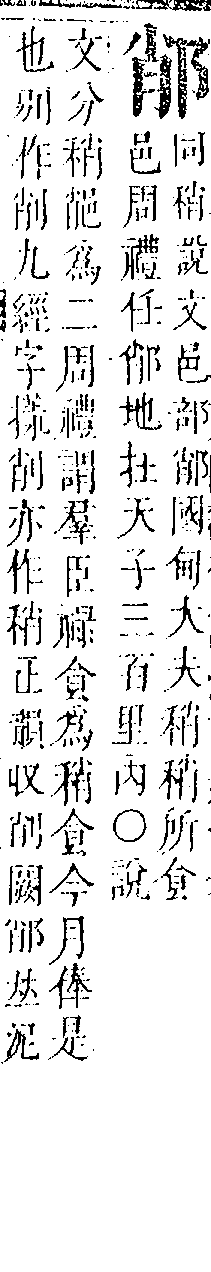 䣪
同稍說文邑部䣪國甸大夫稍稍所食
邑周禮任䣪地在天子三百里內○說
文分稍䣪爲二周禮謂羣臣祿食爲稍食今月俸是
也別作削九經字㨾削亦作稍正韻收削闕䣪𠀤泥